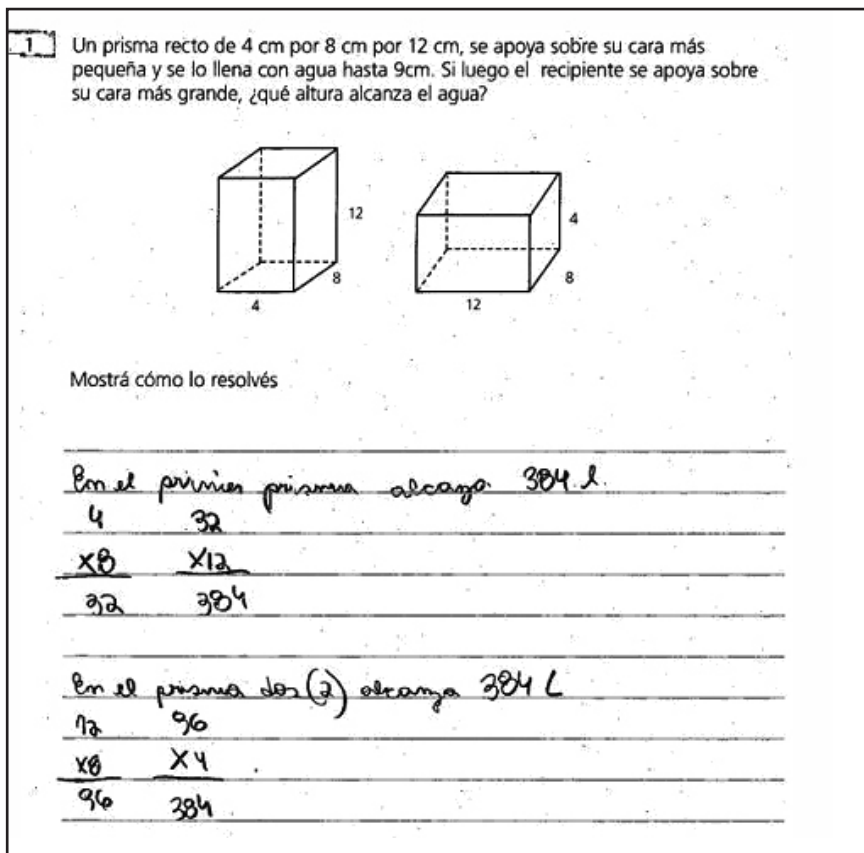 1 Un prisma recto de 4 cm por 8 cm por 12 cm, se apoya sobre su cara más
pequeña y se lo llena con agua hasta 9cm. Si luego el recipiente se apoya sobre
su cara más grande, ¿qué altura alcanza el agua?
12
8
4
4
8
12
Mostrá cómo lo resolvés
En el primier prisma alcanza 384 l.
4 32
x8 x12
32 384
En el prisma dos (2) alcanza 384 L
12 96
x8 x4
96 384